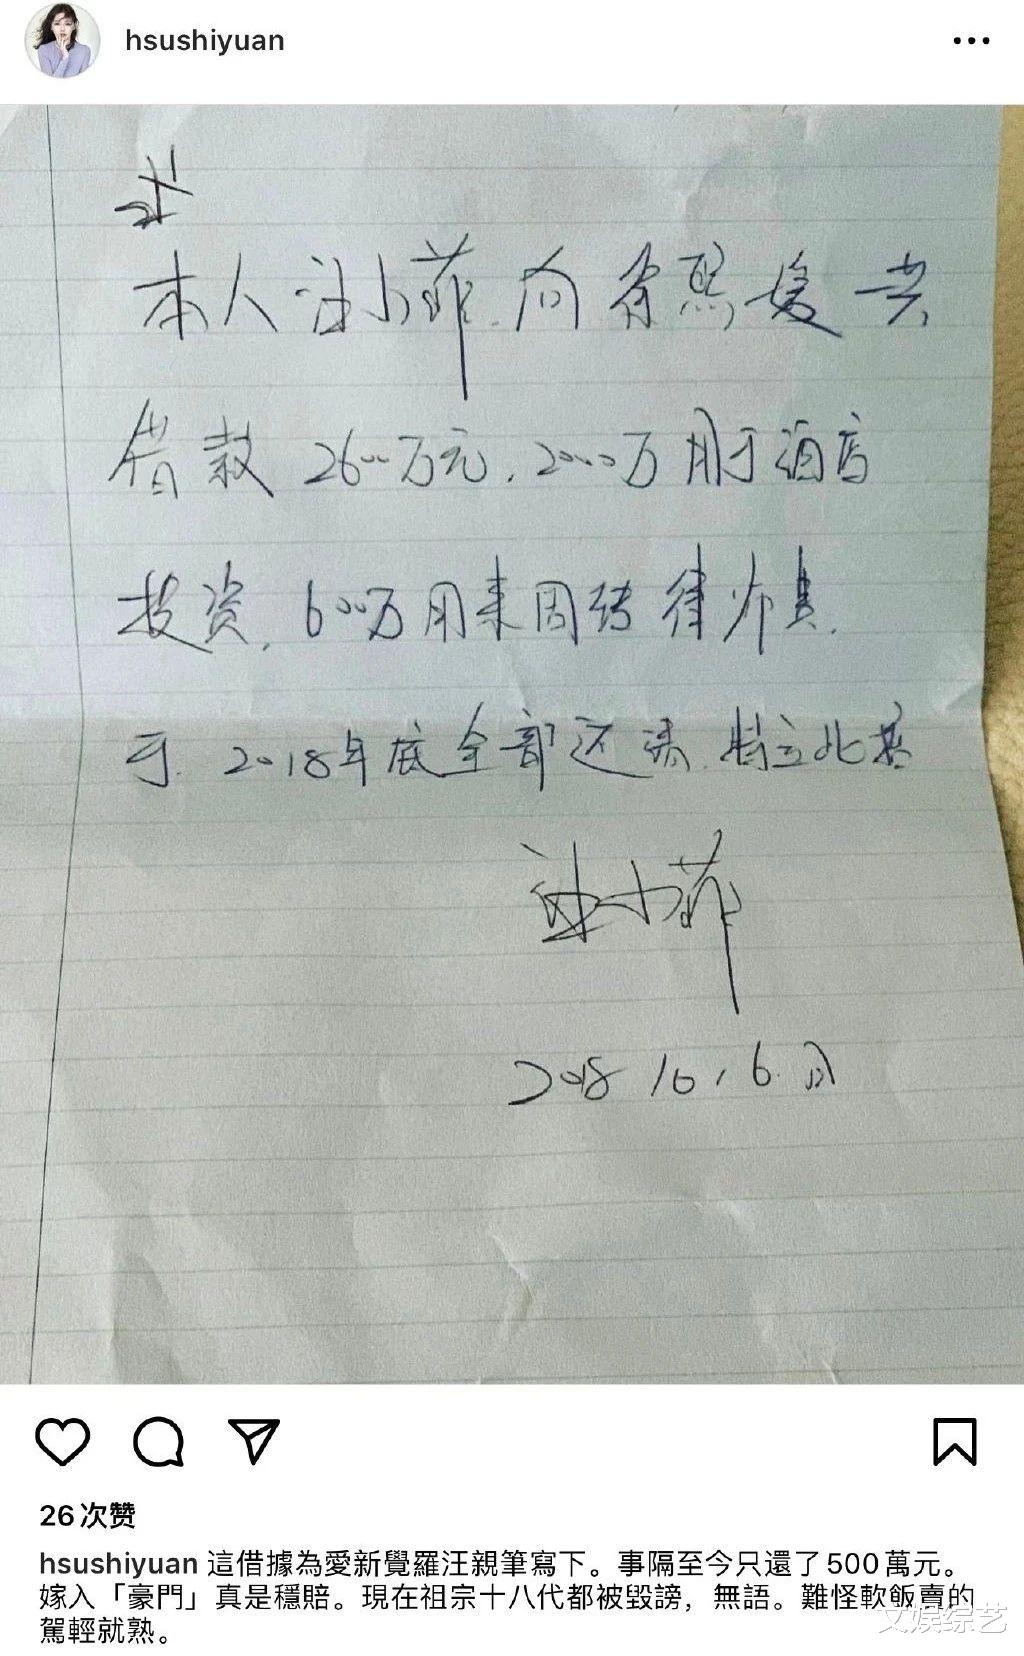 hsushiyuan
本人汪小菲.向徐熙媛共
借款2600万元,2000万用于酒店
投资,600万用来周转律师费.
于.2018年底全部还清.特立此据
汪小菲
2018 10,6.日
26次赞
hsushiyuan 這借據為愛新覺羅汪親筆寫下。事隔至今只還了500萬元。
嫁入「豪門」真是穩賠。現在祖宗十八代都被毀謗，無語。難怪軟飯賣的
駕輕就熟。
文娱综艺